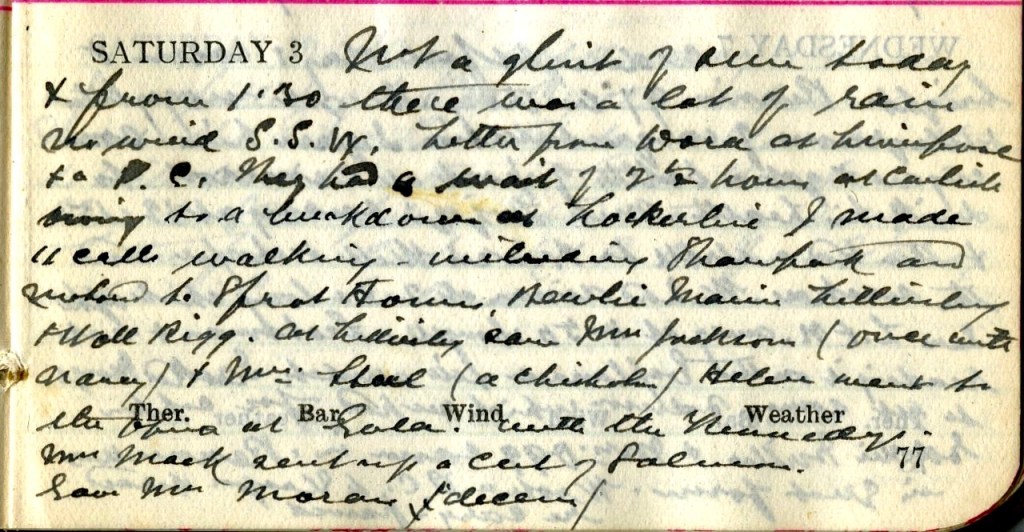 SATURDAY 3 Not a glint of sun today
& from 1.30 there was a lot of rain
no wind S.S.W. Letter from Dora at Liverpool
& a P.C. They had a wait of 2½ hours at Carlisle
owing to a breakdown at Lockerbie I made
11 calls walking - including Shawpark and
motored to Sprot Homes, Bewlie Mains Lilliesley
& Wall Rigg. At Lilliesley saw Mrs Jackson (once with
Nancy) & Mrs. Steel (a Chisholm) Helen went to
Ther. Bar. Wind Weather
the at Gala. with the Kennedys.
Mrs Mack sent up a cut of Salmon.
77
Saw Mrs Moran